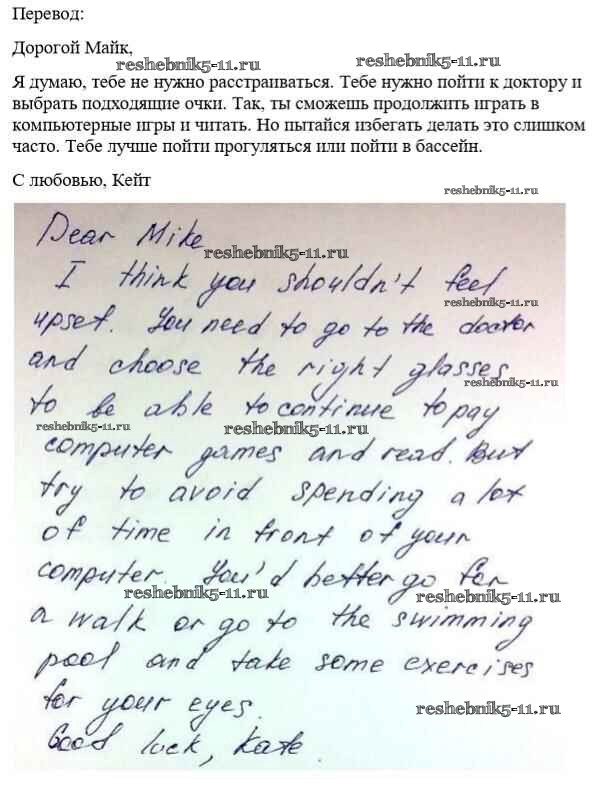 Перевод:
Дорогой Майк,
reshebnik5-11.ru
Я думаю, тебе не нужно расстраиваться. Тебе нужно пойти к доктору и
выбрать подходящие очки. Так, ты сможешь продолжить играть в
компьютерные игры и читать. Но пытайся избегать делать это слишком
часто. Тебе лучше пойти прогуляться или пойти в бассейн.
С любовью, Кейт
reshebnik5-11.ru
Dear Mike
reshebnik5-11.ru
I think you shouldn't feel
reshebnik5-11.ru
upset. You need to go to the doctor
and choose the right glasses
reshebnik5-11.ru
to be able to continue to pay
reshebnik5-11.ru
reshebnik5-11.ru
computer games and read. But
try to avoid spending a lot
of time in front of your
computer. You'd better go for
reshebnik5-11.ru
reshebnik5-11.ru
a walk or go to the swimming
pool and take some exercises
for your eyes.
reshebnik5-11.ru
Good luck, Kate